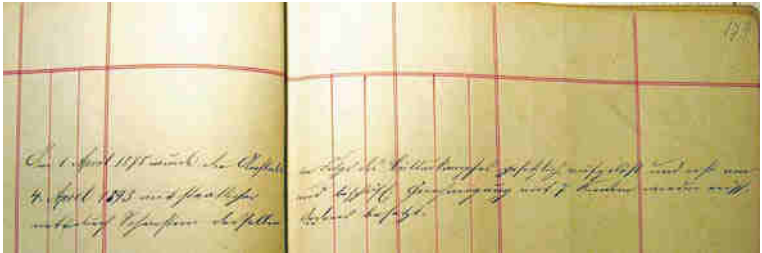 Am 1. April wurde die Anstalt in Folge des Kulturkampfes gesetzlich aufgelöst und erst am
4. April 1893 mit staatlicher und bischöfl. Genehmigung mit 7 Kindern wieder eröff-
Schwestern desselben Ordens besetzt.